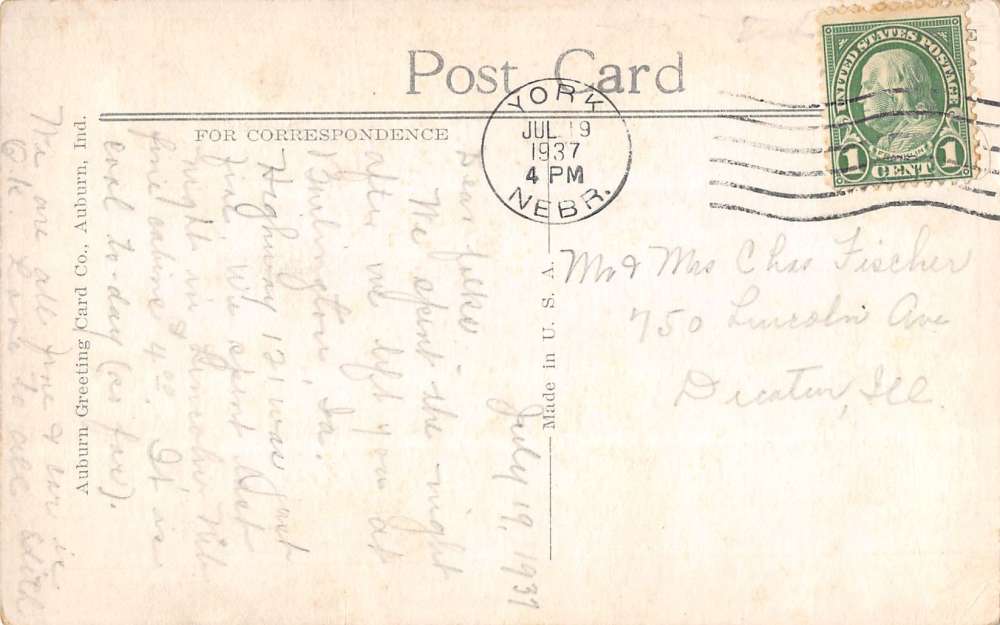 Post Card
FOR CORRESPONDENCE
YORK
JUL 19
1937
4 PM
NEBR.
UNITED STATES POSTAGE
FRANKLIN
1 CENT 1
Mr & Mrs Chas Fischer
750 Lincoln Ave
Decatur, Ill.
Made in U. S. A.
Auburn Greeting Card Co., Auburn, Ind.
July 19, 1937
Dear folks
We spent the night
after we left you at
Burlington, Ia.
Highway 121 was
fine. We spent Sat
night in Lincoln Neb
fine cabins It is
cool to-day (so far).
We are all fine & car is
O.K. Love to all